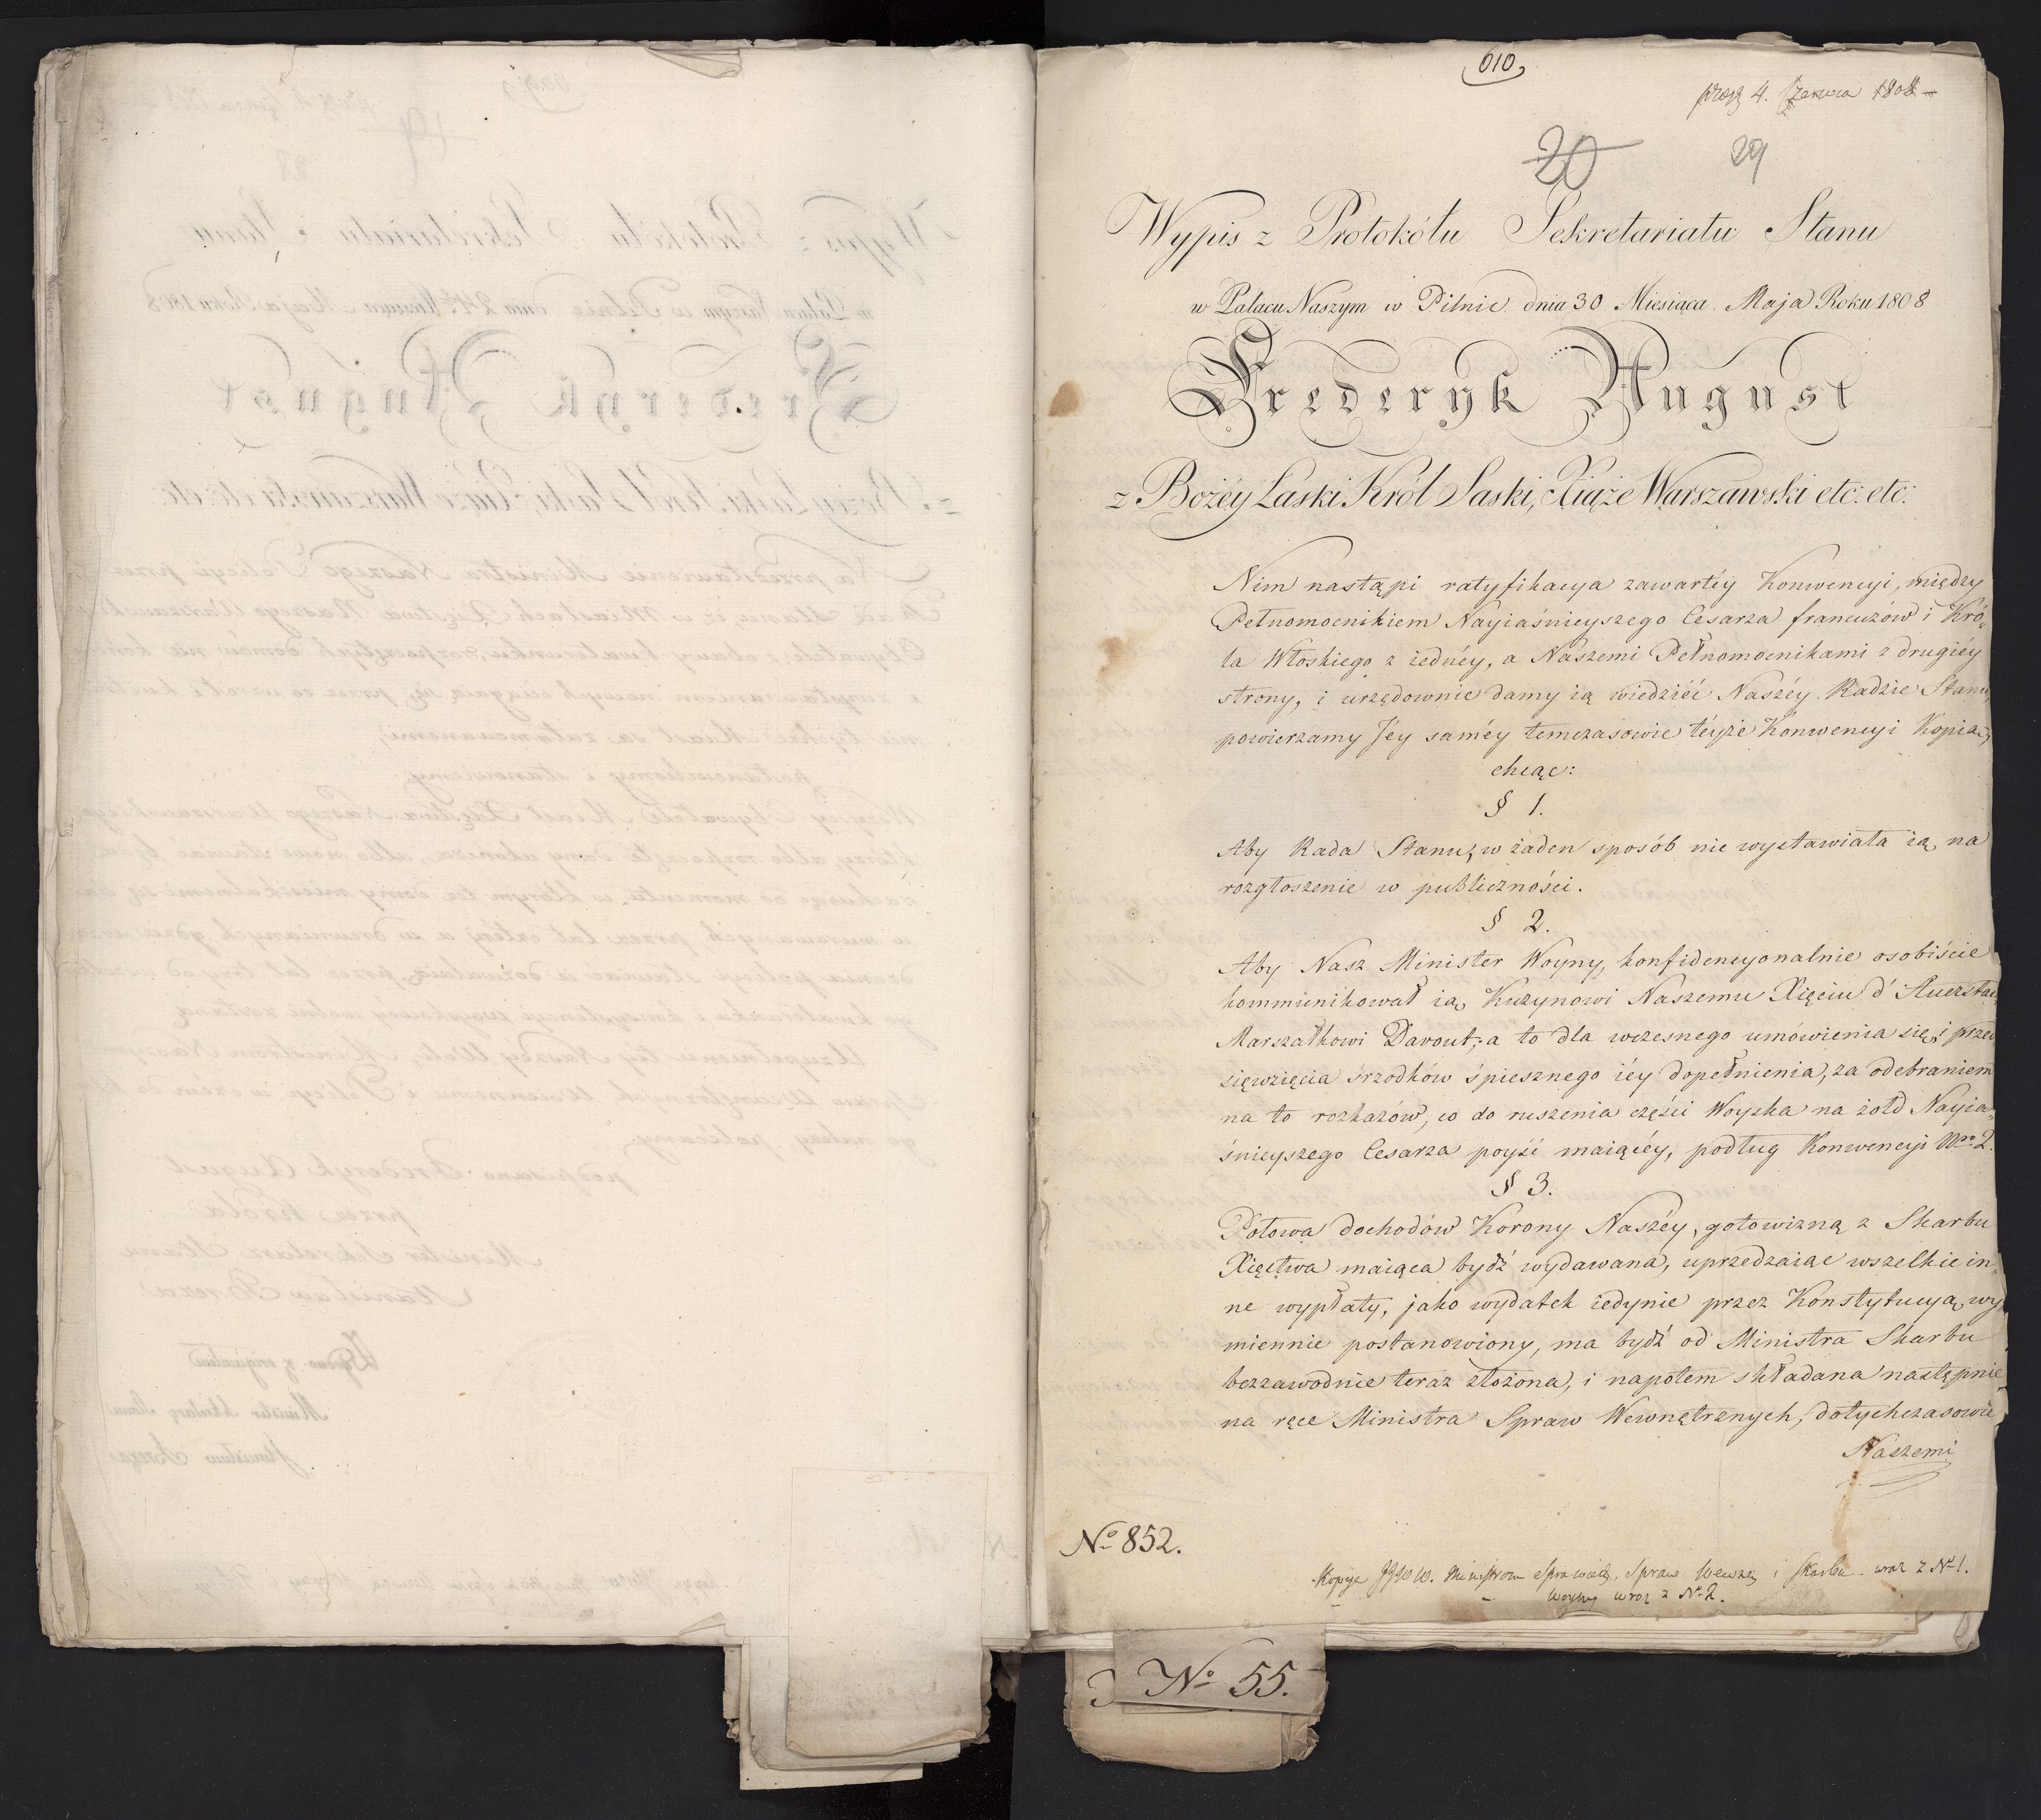 610
4. Czerwca 1808
20 29
Wypis z Protokółu Sekretariatu Stanu
w Pałacu Naszym w Pilnic dnia 30 Miesiąca Maja Roku 1808
Frederyk August
z Bożéy Łaski Król Saski, Xiąże Warszawski etc: etc:
Nim nastąpi ratyfikacya zawartéy Konwencyi, między
Pełnomocnikiem Nayiaśnieyszego Cesarza francuzów i Kró„
la Włoskiego z iednéy, a Naszemi Pełnomocnikami z drugiéy
strony, i urzędownie damy ią wiedziéć Naszéy Radzie Stanu,
powierzamy Jéy saméy temczasowie téyże Konwencyi Kopią,
chcąc:
§ 1.
Aby Rada Stanu, w żaden sposób nie wystawiała ią, na
rozgłoszenie w publiczności.
§ 2.
Aby Nasz Minister Woyny, konfidencyonalnie osobiście
kommunikował ią, Kuzynowi Naszemu Xięciu d'Auerstae
Marszałkowi Davout; a to dla wczesnego umówienia się, i przed
sięwzięcia śrzodków śpiesznego iéy dopełnienia, za odebraniem
na to rozkazów, co do ruszenia części Woyska na żołd Nayia„
śnieyszego Cesarza poyść maiącéy, podług Konwencyi Nro 2.
§ 3.
Połowa dochodów Korony Naszéy, gotowizną z Skarbu
Xięstwa maiąca bydź wydawana, uprzedzaiąc wszelkie in„
ne wypłaty, jako wydatek iedynie przez Konstytucyą, wy
miennie postanowiony, ma bydź od Ministra Skarbu
bezzawodnie teraz złożona, i napotem składana następnie
na ręce Ministra Spraw Wewnętrznych, dotychczasowie
Naszemi
No 852.
Kopije JJWW. Ministrom Sprawiedl, Spraw Wewnę i Skarbu wraz z No 1.
Woyny wraz z No 2.
No 55.